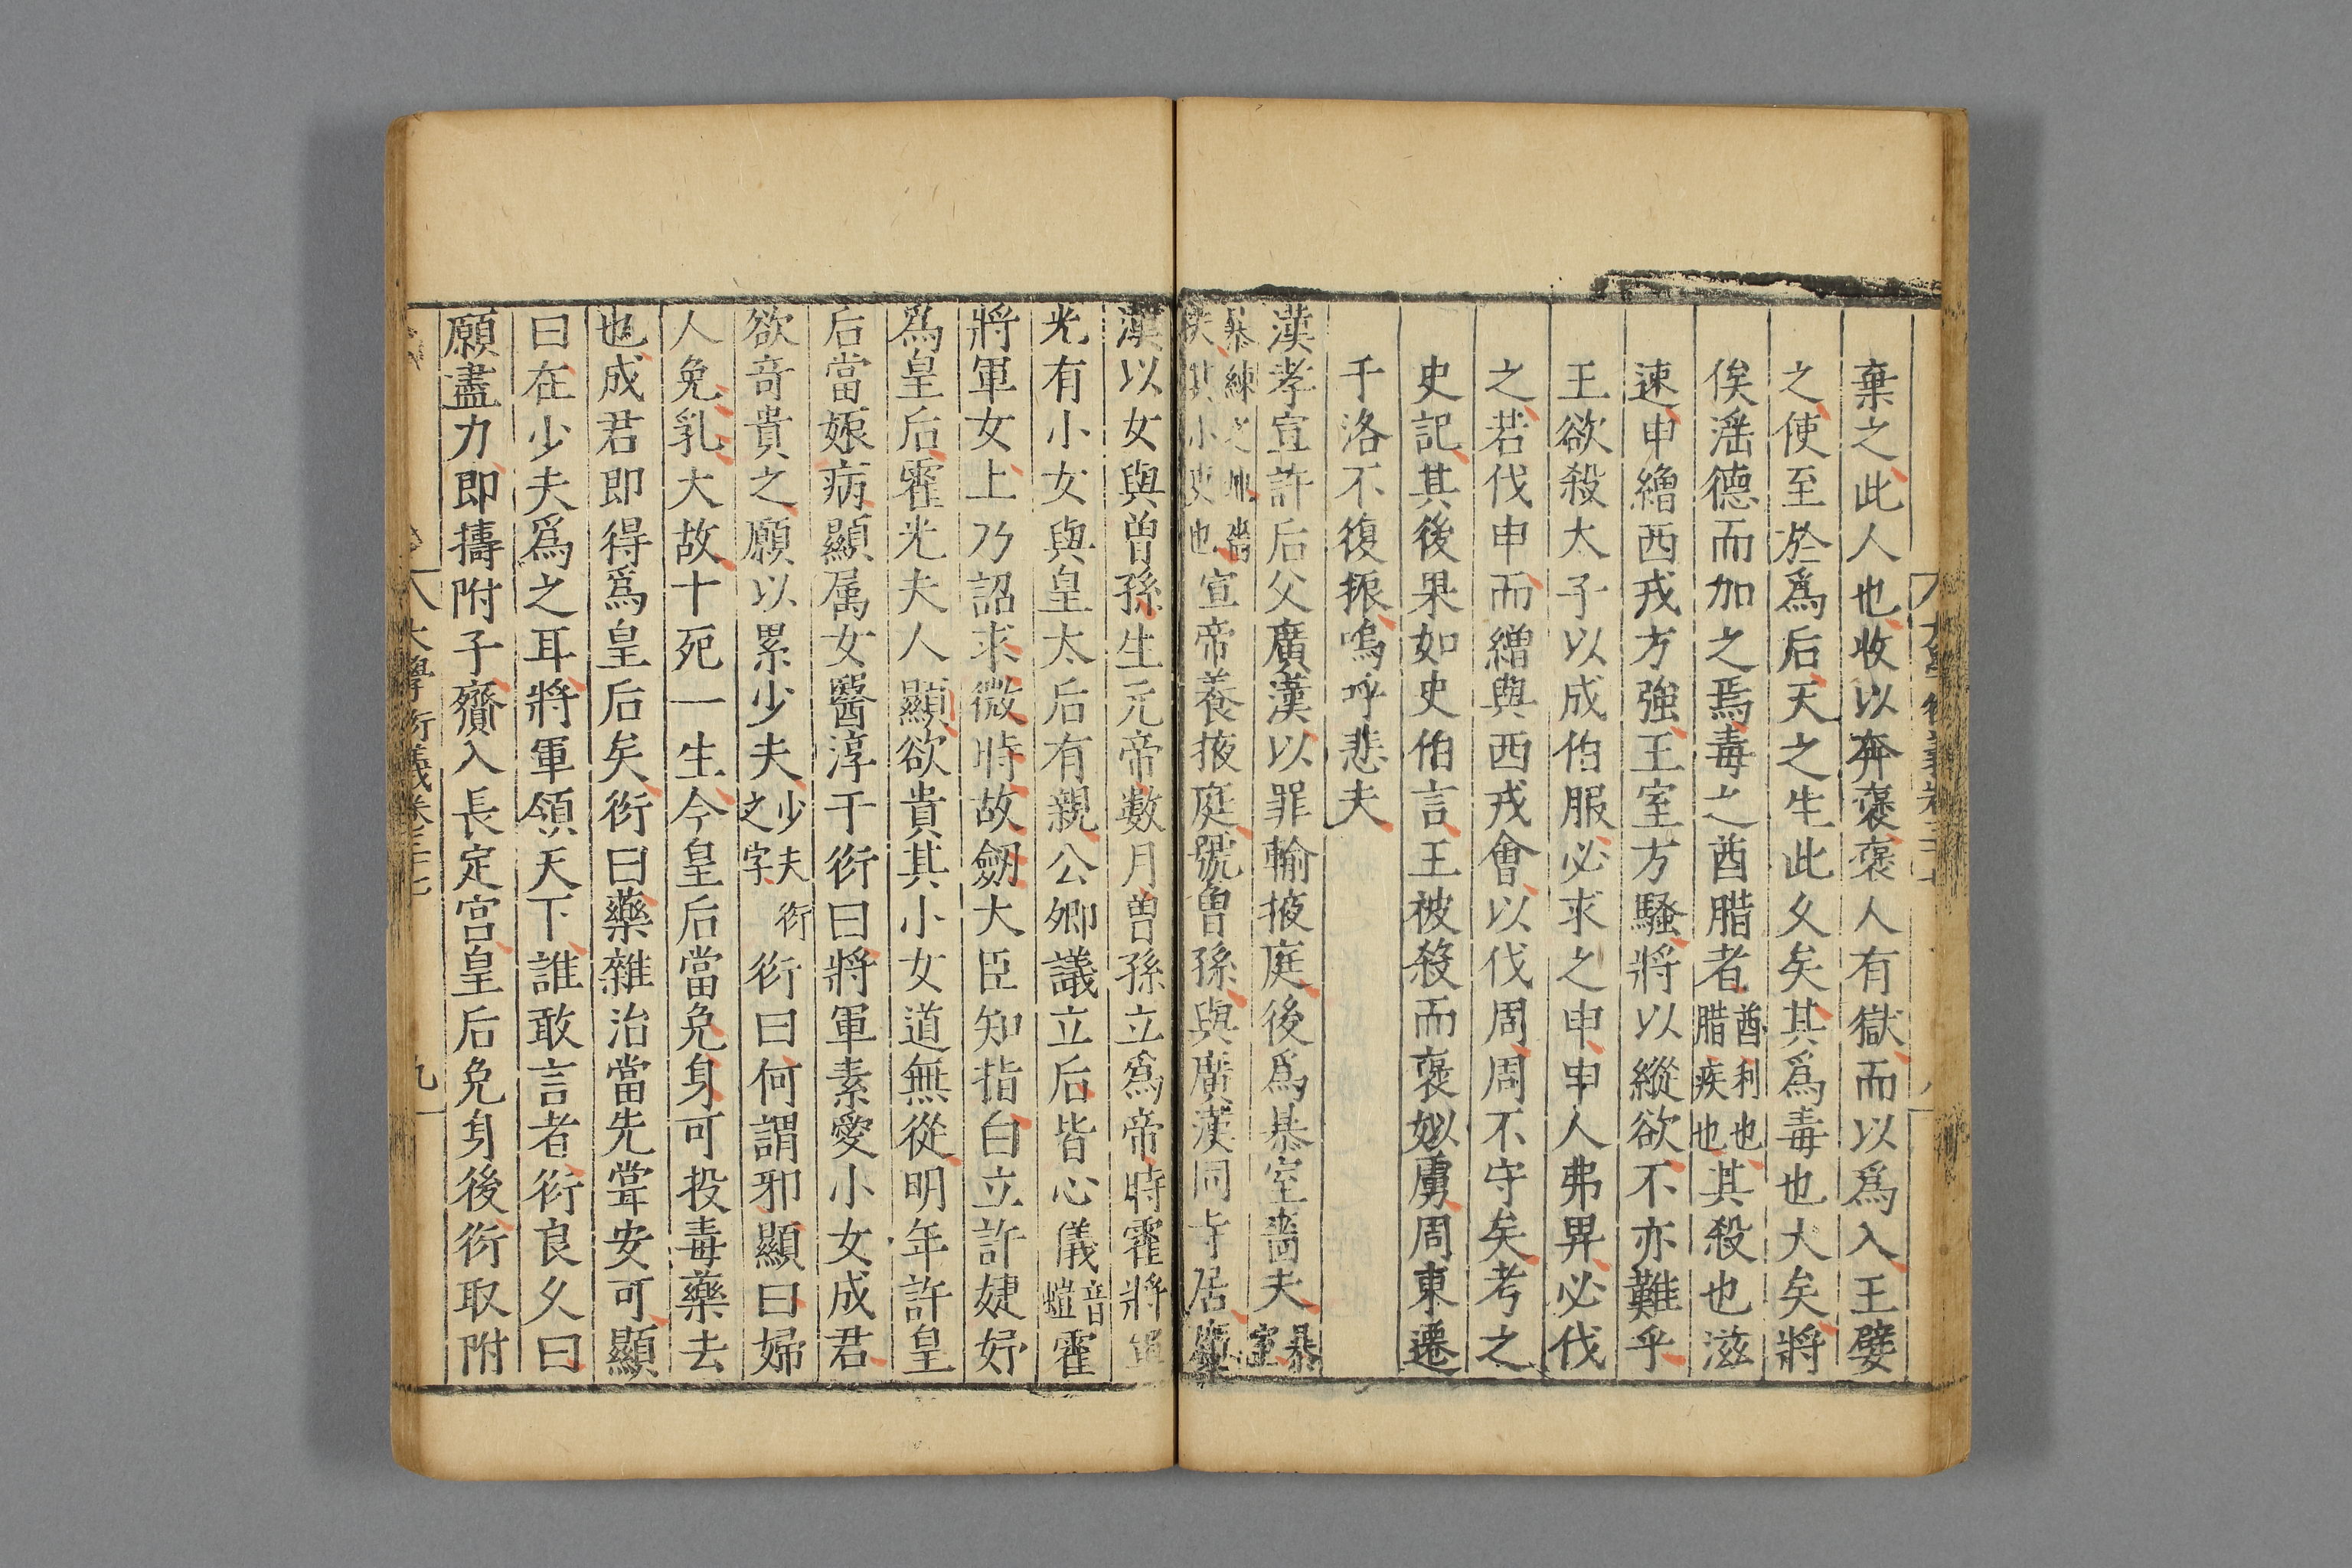 棄之此人也收以奔褒褒人有獄而以爲入王嬖
之使至於爲后天之生此久矣其爲毒也大矣將
俟淫德而加之焉毒之酋腊者酋利也腊疾也其殺也滋
速申繒西戎方強王室方騷將以縱欲不亦難乎
王欲殺太子以成伯服必求之申申人弗畀必伐
之若伐申而繒與西戎會以伐周周不守矣考之
史記其後果如史伯言王被殺而褒姒虜周東遷
于洛不復振嗚呼悲夫
漢孝宣許后父廣漢以罪輸掖庭後爲暴室嗇夫暴室
暴練之地嗇夫其小吏也宣帝養掖庭號曾孫與廣漢同寺居廣
漢以女與曾孫生元帝數月曾孫立爲帝時霍將軍
光有小女與皇太后有親公卿議立后皆心儀音螘霍
將軍女上乃詔求微時故劒大臣知指白立許婕妤
爲皇后霍光夫人顯欲貴其小女道無從明年許皇
后當娠病顯属女醫淳于衍曰將軍素愛小女成君
欲竒貴之願以累少夫少夫衍之字衍曰何謂邪顯曰婦
人免乳大故十死一生今皇后當免身可投毒藥去
也成君即得爲皇后矣衍曰藥雜治當先甞安可顯
曰在少夫爲之耳將軍領天下誰敢言者衍良久曰
願盡力即擣附子齎入長定宫皇后免身後衍取附
大學衍義卷三十七
九